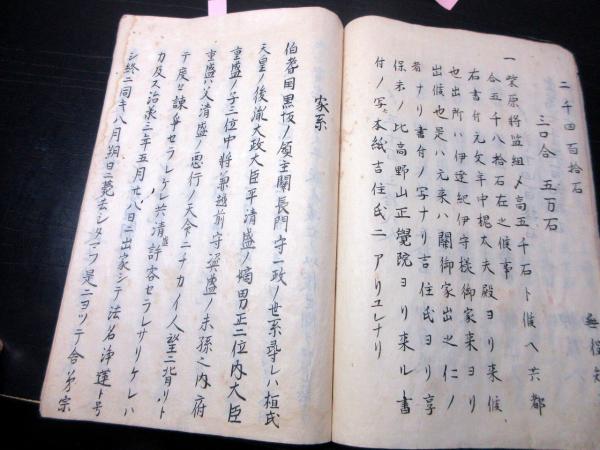 二千四百拾石
三口合 五万石
一柴原将監組〆高五千石ト候ヘ共都
合五千八拾石在之候事
右書付元文年中桃太夫殿ヨリ来候
也出所ハ伊達紀伊守様御家来ヨリ
出候也是ハ元来ハ関御家出之仁ノ
者ナリ書付ノ写ナリ吉住氏ヨリ享
保末ノ比高野山正覚院ヨリ来ル書
付ノ写本紙吉住氏ニアリユレナリ
家系
伯耆国黒坂ノ領主関長門守一政ノ世系尋レハ桓武
天皇ノ後胤大政大臣平清盛ノ嫡男正二位内大臣
重盛ノ子三位中将兼越前守資盛ノ末孫之内府
重盛ハ父清盛ノ悪行ノ天命ニチカイ人望ニ背ノト
テ度々諫争セラレケレ共清盛許容セラレサリケレハ
カ及ス治承三年五月廿八日ニ出家シテ法名浄蓮ト号
シ終ニ同キ八月朔日ニ薨去シタマフ是ニヨツテ舎弟宗